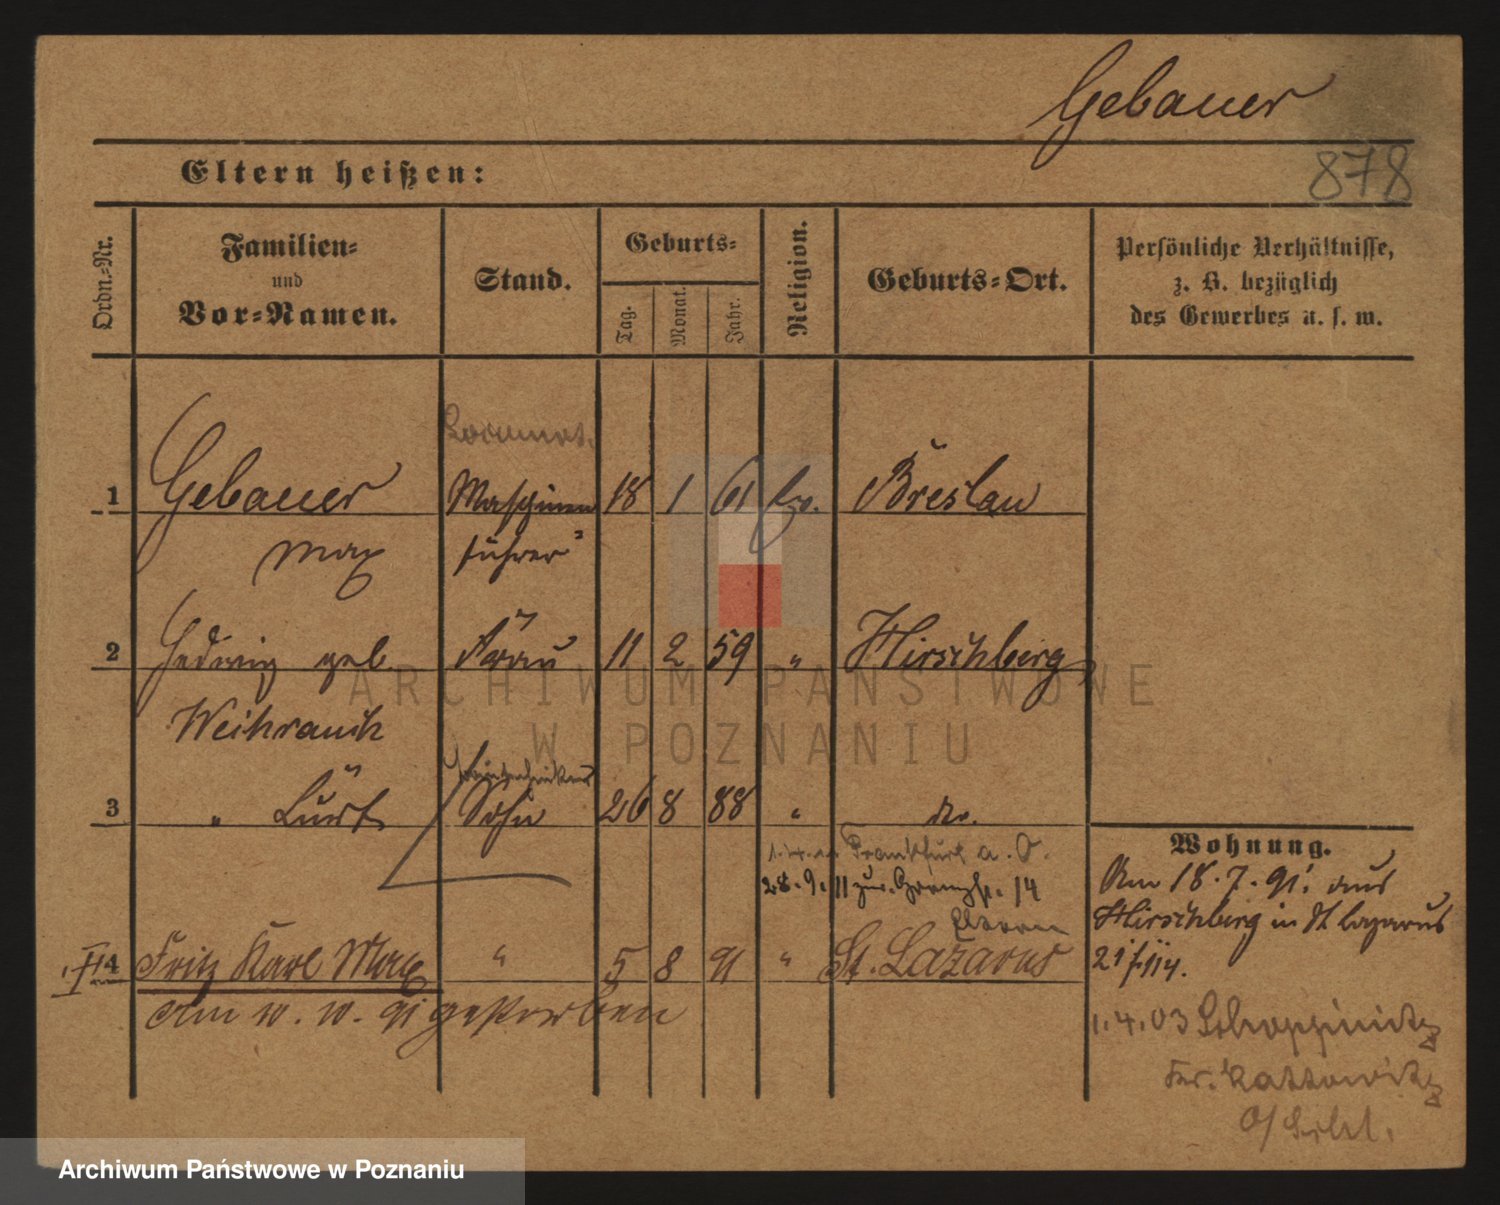 Gebauer
878
Eltern heißen:
Ordn.-Nr.
Familien-
und
Vor-Namen.
Stand.
Geburts-
Tag.
Monat.
Jahr.
Religion.
Geburts-Ort.
Persönliche Verhältnisse,
z. B. bezüglich
des Gewerbes u. s. w.
Locomot.
1 Gebauer Maschinen 18 1 61 Ev. Breslau
Max führer
2 Hedwig geb. Frau 11 2 59 " Hirschberg
Weihrauch
3 " Kurt Sohn 26 8 88 " do.
Wohnung.
Frankfurt a. O.
28.9.11 zur. 14
Eltern
Am 18.7.91. aus
Hirschberg in St Lazarus
4 Fritz Karl Max " 5 8 91 " St. Lazarus
am 10.10.91 gestorben
1.4.03 Schoppinitz
Kr. Kattowitz
O/Schl.
ARCHIWUM PAŃSTWOWE
W POZNANIU
Archiwum Państwowe w Poznaniu